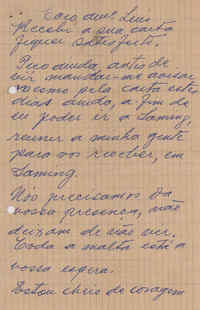 Caro amº Luis
Recebi a sua carta
fiquei satisfeito.
Peço ainda, antes de
vir mandar-me avisar
como pela carta estes
dias ainda, a fim de
eu poder ir a Saming,
reunir a minha gente
para vos receber, em
Saming.
Nós precisamos da
vossa presença, não
deixam de não vir.
Toda a malta está a
vossa espera.
Estou cheio de coragem